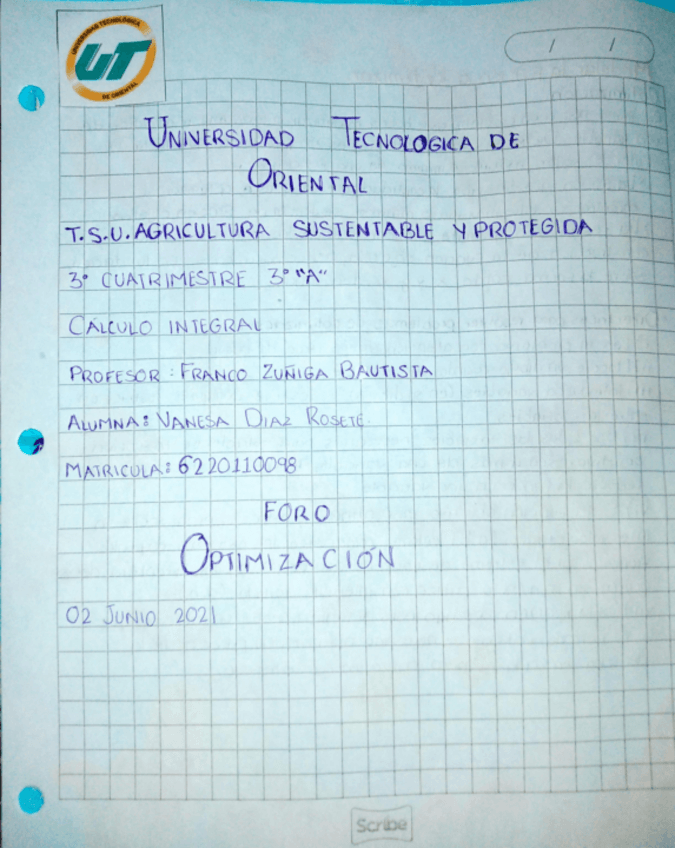 UNIVERSIDAD TECNOLÓGICA
UT
DE ORIENTAL
/ /
UNIVERSIDAD TECNOLOGICA DE
ORIENTAL
T.S.U. AGRICULTURA SUSTENTABLE Y PROTEGIDA
3° CUATRIMESTRE 3° "A"
CALCULO INTEGRAL
PROFESOR: FRANCO ZUÑIGA BAUTISTA
ALUMNA: VANESA DIAZ ROSETE
MATRICULA: 6220110098
FORO
OPTIMIZACIÓN
02 JUNIO 2021
Scribe